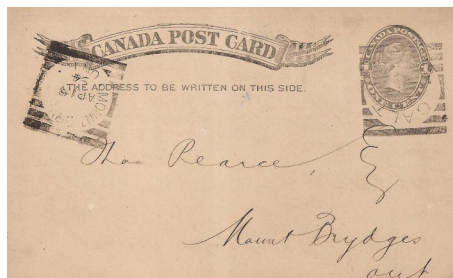 CANADA POST CARD
THE ADDRESS TO BE WRITTEN ON THIS SIDE.
CANADA POSTAGE
GALT
MOUNT
AP
Thos Pearce, Esq
Mount Brydges
Ont